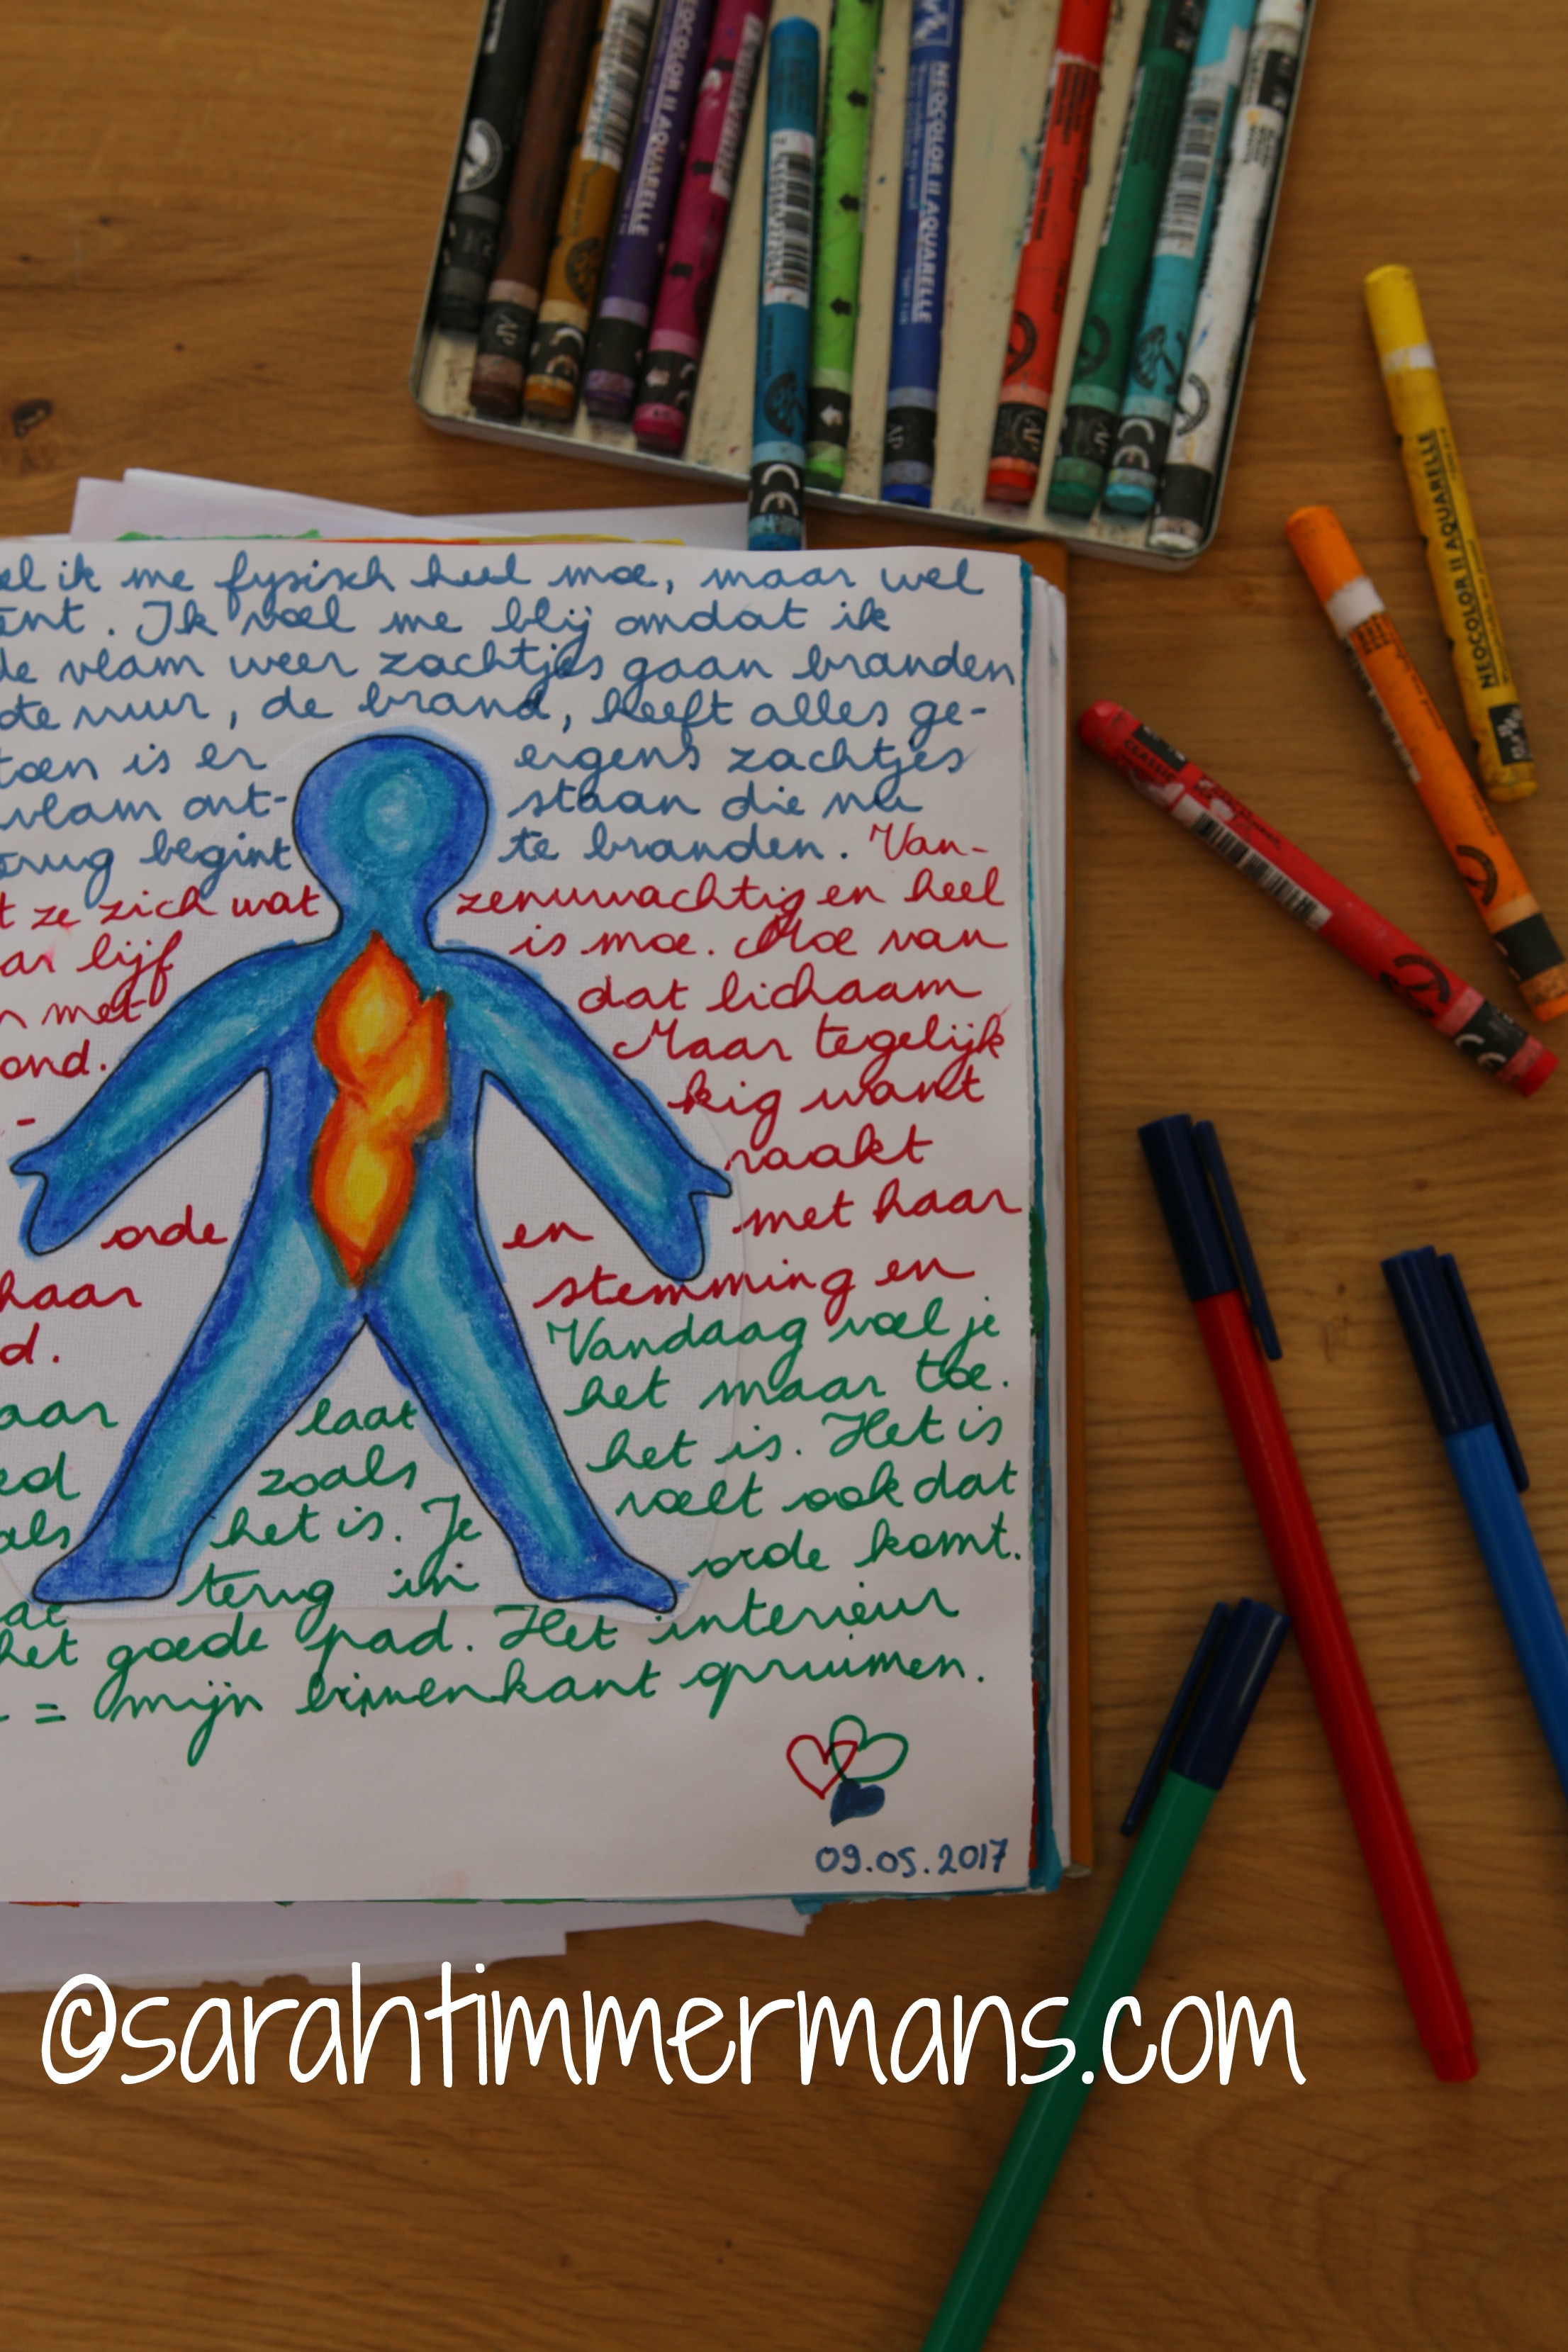 NEOCOLOR II AQUARELLE
NEOCOLOR II AQUARELLE
NEOCOLOR II AQUARELLE
CE
CE
CE
AP
AP
AP
CLASSIC
el ik me fysisch heel moe, maar wel
ent. Ik voel me blij omdat ik
de vlam weer zachtjes gaan branden
ote vuur, de brand, heeft alles ge-
toen is er ergens zachtjes
vlam ont- staan die nu
erug begint te branden. Van-
t ze zich wat zenuwachtig en heel
ar lijf is moe. Moe van
n met dat lichaam
ond. Maar tegelijk
- kig want
raakt
orde en met haar
haar stemming en
d. Vandaag voel je
aar laat het maar toe.
ed zoals het is. Het is
als het is. Je voelt ook dat
at terug in orde komt.
het goede pad. Het interieur
= mijn binnenkant opruimen.
09.05.2017
©sarahtimmermans.com